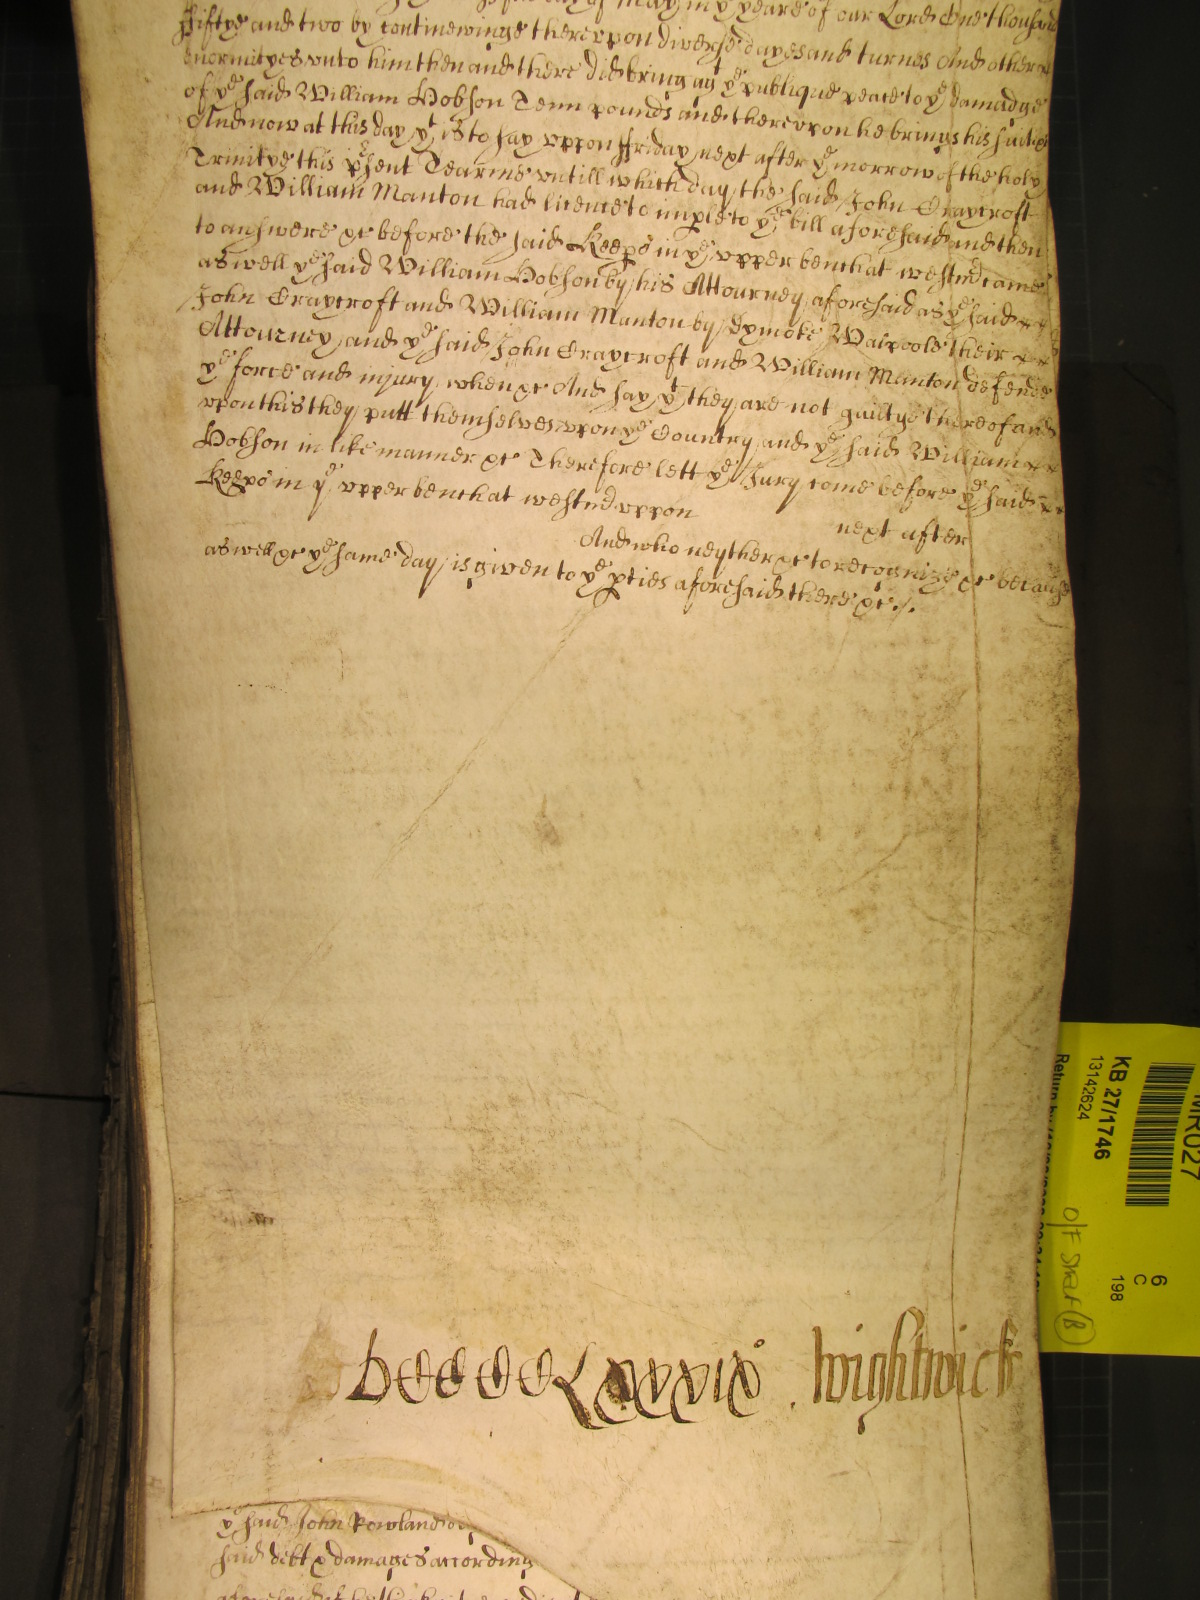 day of May in ye yeare of our Lord One thousand
Fiftye and two by continewinge therevpon diverse dayes and turnes And other
enormityes vnto him then and there did bring agt ye publique peace to ye damadge
of ye said William Hobson Tenn pounds and therevpon he brings his suite &c
And now at this day yt is to say vppon Friday next after ye morrow of the holy
Trinitye this psent Tearme vntill which day the said John Craycroft
and William Manton had licence to imple to ye bill aforesaid and then
to answere &c before the said Keeps in ye vpper bench at westmd came
aswell ye said William Hobson by his Attourney aforesaid as ye said
John Craycroft and William Manton by Dymoke Walpoole their
Attourney and ye said John Craycroft and William Manton defende
ye force and injury when &c And say yt they are not guiltye thereof and
vpon this they putt themselves vpon ye Country and ye said William
Hobson in like manner &c Therefore lett ye Jury come before ye said
Keeps in ye vpper bench at westmd vppon next after
And who neyther &c to recognize &c because
aswell &c ye same day is given to ye pties aforesaid there &c ./.
wightwick
ye said John Rowland
said debt & damages according
KB 27/1746
13142624
MR027
6
C
198
O/F Shelf B